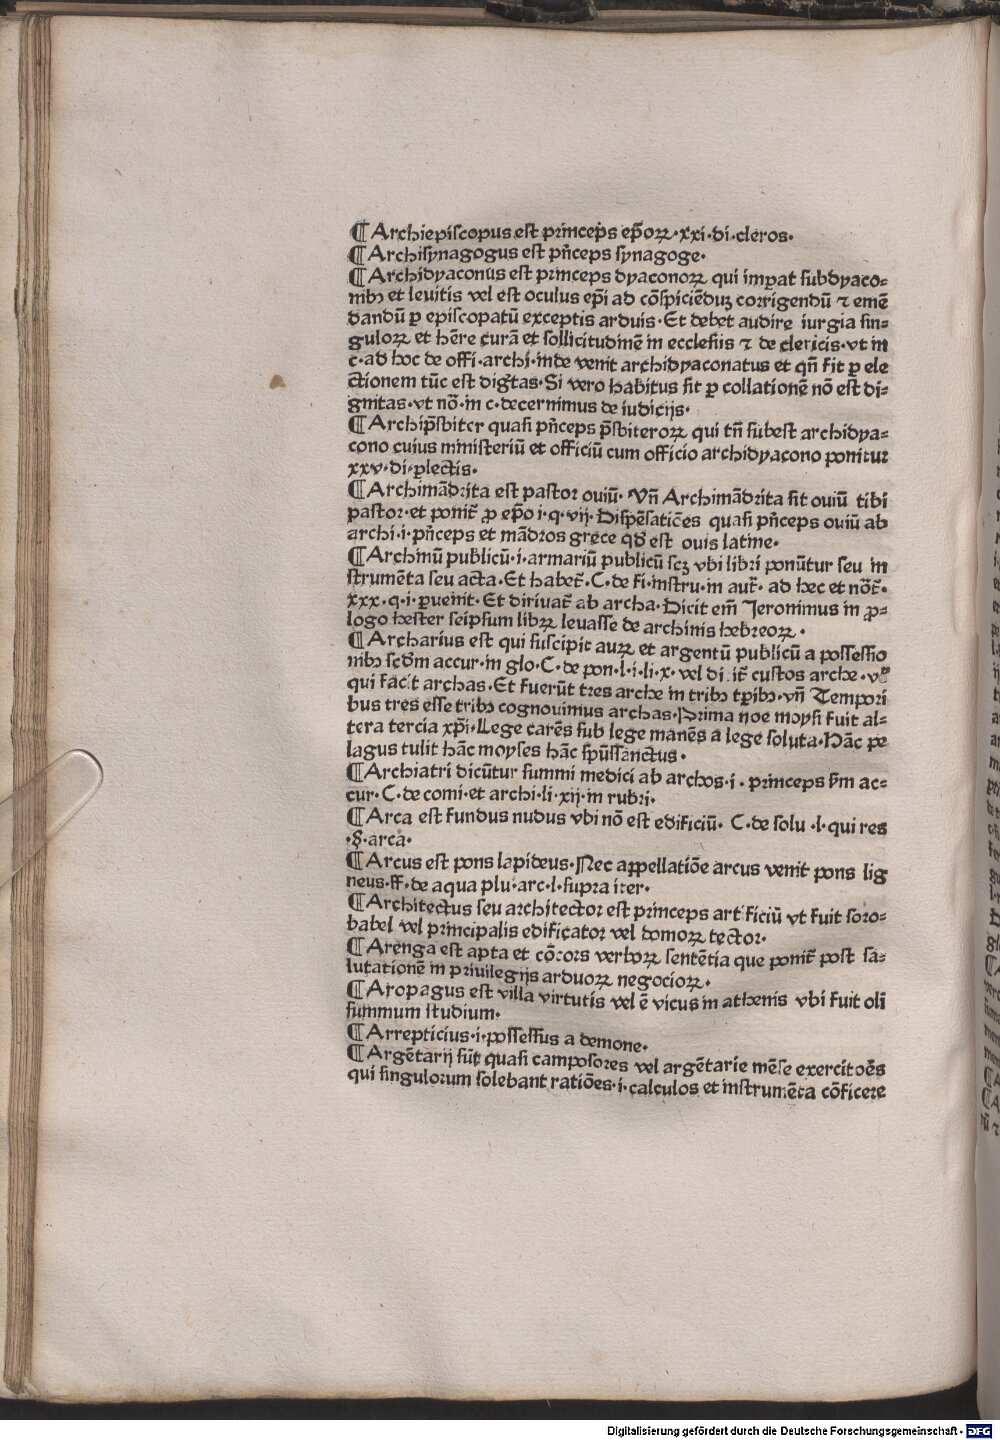 ¶Archiepiscopus est princeps ep̄oꝝ·xxi·di·cleros·
¶Archisynagogus est p̄nceps synagoge·
¶Archidyaconus est princeps dyaconoꝝ qui imꝑat subdyaco⸗
nibꝫ et leuitis vel est oculus ep̄i ad cōspiciēduꝫ corrigendū ⁊ emē
dandū ꝑ episcopatū exceptis arduis·Et debet audire iurgia sin⸗
guloꝝ et hēre curā et sollicitudinē in ecclesiis ⁊ de clericis·vt in
c·ad hoc de offi·archi·inde venit archidyaconatus et qn̄ fit ꝑ ele
ctionem tūc est diḡtas·Si vero habitus fit ꝑ collationē nō est di⸗
gnitas·vt nō·in c·decernimus de iudicijs·
¶Archip̄sbiter quasi p̄nceps p̄sbiteroꝝ qui tn̄ subest archidya⸗
cono cuius ministeriū et officiū cum officio archidyacono ponitur
xxv·di·ꝑlectis·
¶Archimādrita est pastor ouiū· Vn̄ Archimādrita sit ouiū tibi
pastor·et ponit̄ ꝓ ep̄o i·q·vij·Dispēsatiōes quasi p̄nceps ouiū ab
archi·i·p̄nceps et mādros grece qd̄ est ouis latine·
¶Archinū publicū·i·armariū publicū scꝫ vbi libri ponūtur seu in
strumēta seu acta·Et habet̄·C·de fi·instru·in aut̄· ad hec et nōt̄·
xxx·q·i·ꝑuenit·Et diriuat̄ ab archa·Dicit em̄ Jeronimus in ꝓ⸗
logo hester seipsum libꝝ leuasse de archinis hebreoꝝ·
¶Archarius est qui suscipit auꝝ et argentū publicū a possessio
nibꝫ scd̄m accur·in glo·C·de pon·l·i·li·x·vel di it̄ custos arche·vl̄
qui facit archas·Et fuerūt tres arche in tribꝫ tꝑibꝫ·vn̄ Tempori
bus tres esse tribꝫ cognouimus archas·Prima noe moysi fuit al⸗
tera tercia xp̄i·Lege carēs sub lege manēs a lege soluta·Hāc pe
lagus tulit hāc moyses hāc sp̄ussanctus·
¶Archiatri dicūtur summi medici ab archos·i· princeps s̄m ac⸗
cur·C·de comi·et archi·li·xij·in rubri·
¶Arca est fundus nudus vbi nō est edificiū· C·de solu·l·qui res
·§·arca·
¶Arcus est pons lapideus·Nec appellatiōe arcus venit pons lig
neus·ff·de aqua plu·arc·l·supra iter·
¶Architectus seu architector est princeps artificiū vt fuit soro⸗
babel vel principalis edificator vel domoꝝ tector·
¶Arenga est apta et cōcors verboꝝ sentētia que ponit̄ post sa⸗
lutationē in priuilegijs arduoꝝ negocioꝝ·
¶Aropagus est villa virtutis vel ē vicus in athenis vbi fuit oli
summum studium·
¶Arrepticius·i·possessus a demone·
¶Argētarij sūt quasi camposores vel argētarie mēse exercitoēs
qui singulorum solebant ratiōes·i·calculos et instrumēta cōficere
Digitalisierung gefördert durch die Deutsche Forschungsgemeinschaft - DFG